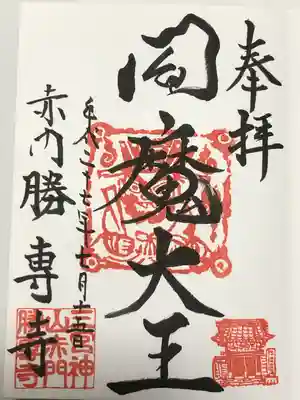 奉拝
閻魔大王
平成二十七年十一月十五日
赤門勝専寺
三宮神
山赤門
勝専寺